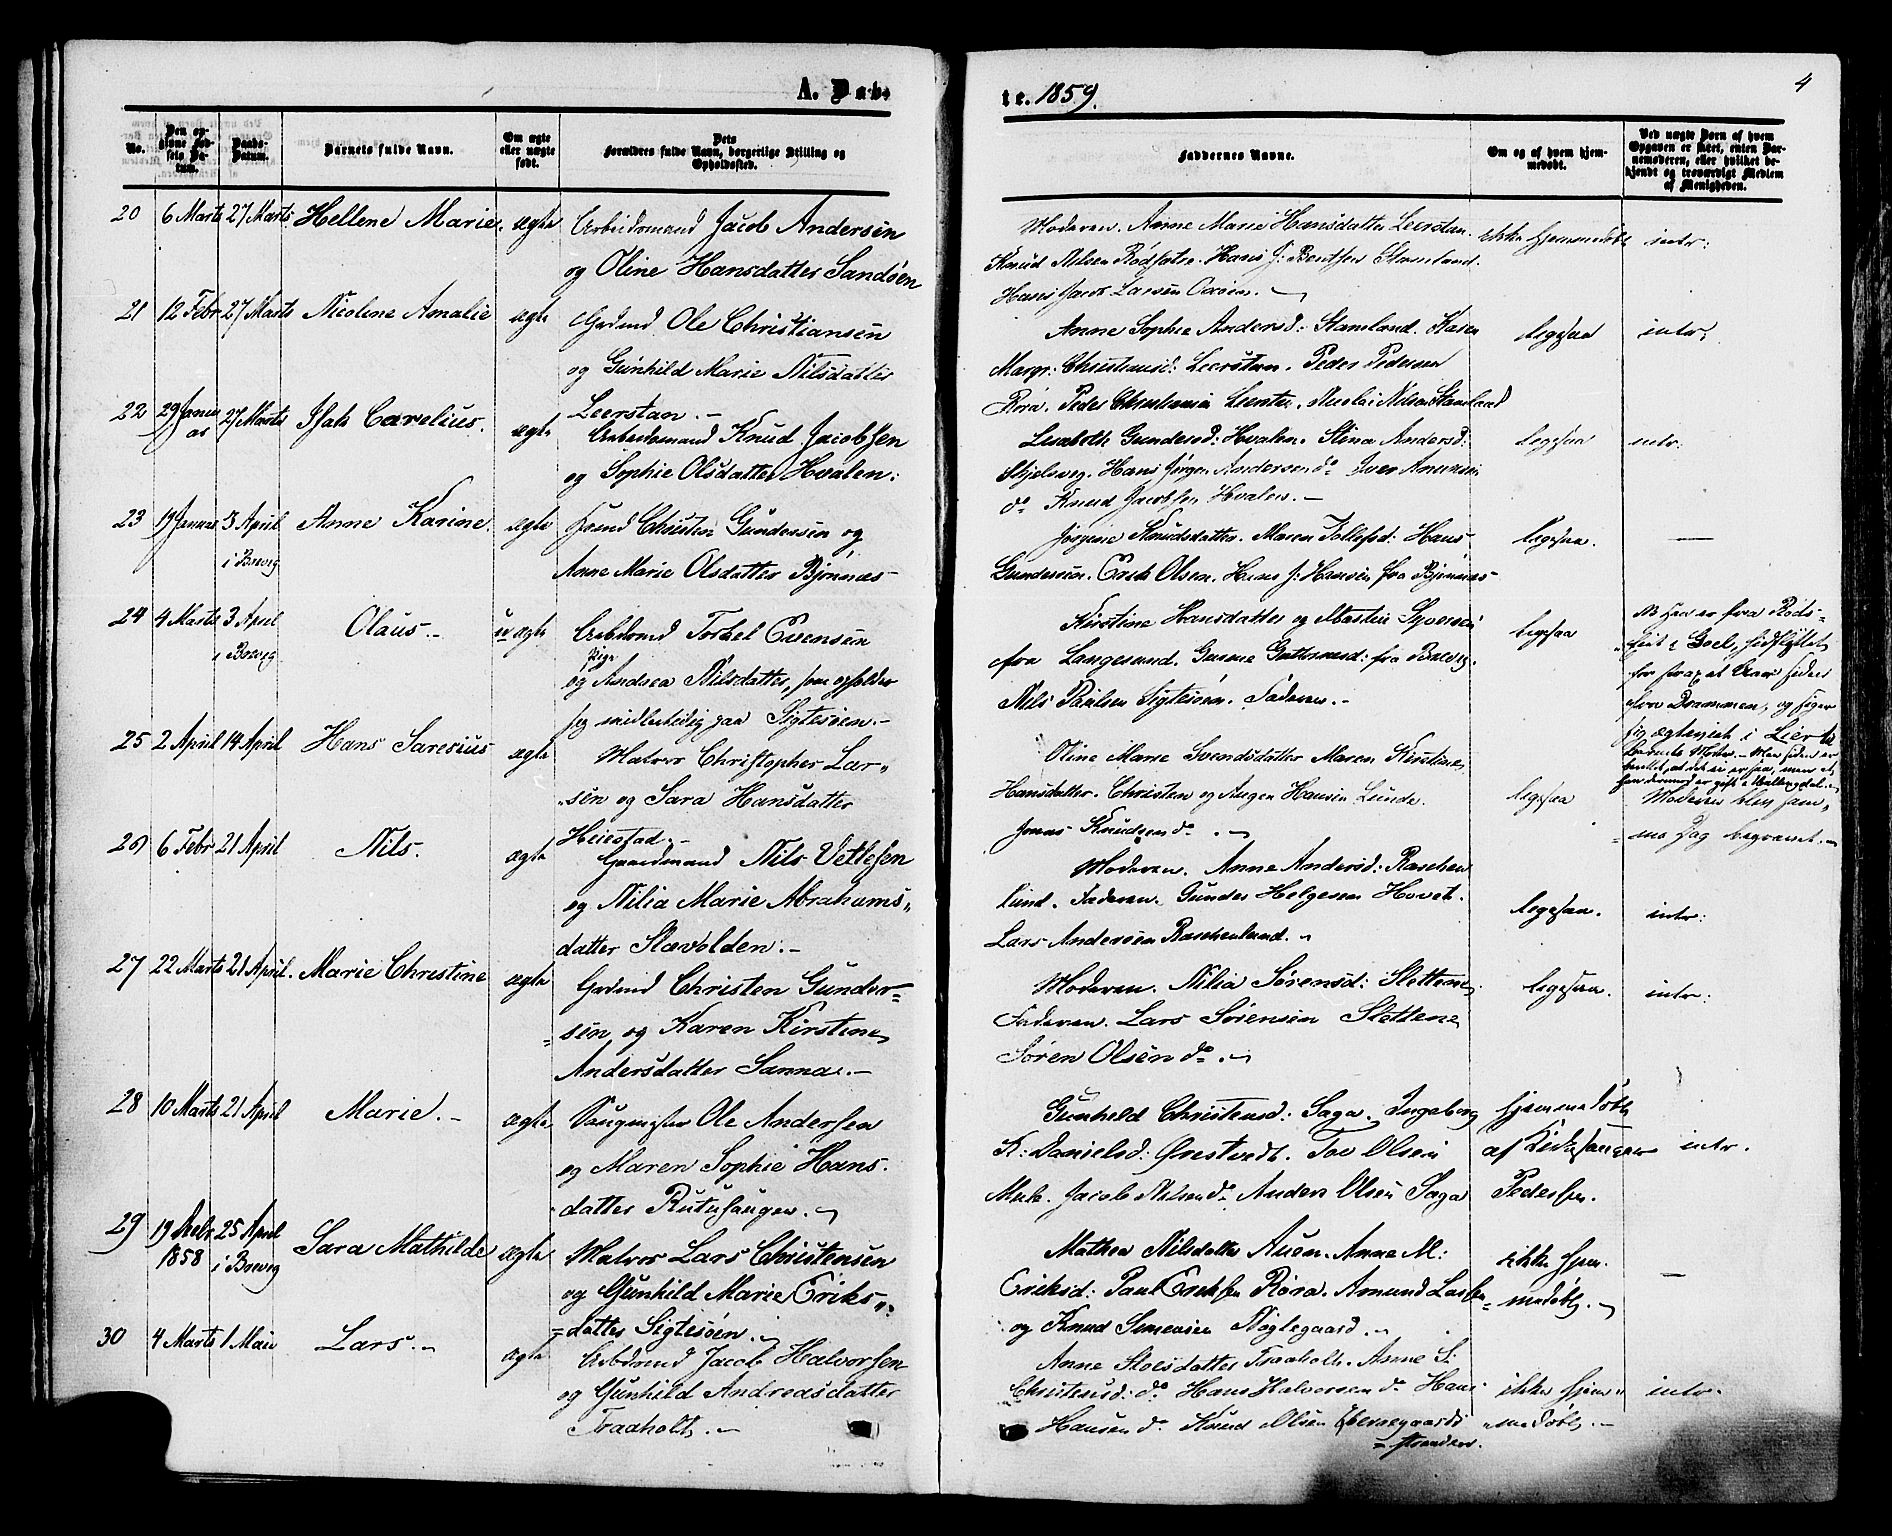 A. Dab-
te. 1859.
4
No.
Den op-
givne Fød-
sels Da-
tum.
Daabs-
Datum.
Barnets fulde Navn.
Om ægte
eller uægte
født.
Dets
Forældres fulde Navn, borgerlige Stilling og
Opholdssted.
Faddernes Navne.
Om og af hvem hjem-
medøbt.
Ved uægte Børn af hvem
Opgaven er skeet, enten Bar-
nemoderen, eller hvilket be-
kjendt og troværdigt Medlem
af Menigheden.
20 6 Marts 27 Marts Hellene Marie. ægte Arbeidsmand Jacob Andersen
og Oline Hansdatter Sandøen
Moderen. Anne Marie Hansdatter Leerstan.
Knud Nilsen Rødsætre. Hans J: Bentsen Stamland.
Hans Jacob Larsen
ikke hjemmedøbt intr:
21 12 Febr 27 Marts Nicoline Amalie ægte Gadmd Ole Christiansen
og Gunhild Marie Nilsdatter
Leerstan.-
Anne Sophie Andersd: Stamland. Karen
Margr: Christiansd: Leerstan. Peder Pedersen
Røra. Peder Christiansen Leerstan. Nicolai Nilsen Stamland
ligesaa intr.
22 29 Janu
ar 27 Marts Isak Carelius. ægte Arbeidsmand Knud Jacobsen
og Sophie Olsdatter Hvalen.
Lisabeth Gundersd: Hvalen. Stina Andersd:
Skjelsvig. Hans Jørgen Andersen do Iver Amundsen
do Knud Jacobsen Hvalen.-
ligesaa intr.
23 19 Januar 3 April
i Brevig Anne Karine. ægte Christen Gundersen og
Anne Marie Olsdatter Bjønnæs-
Jørgine Knudsdatter. Maren Tollefsd: Hans
Gundersen. Erik Olsen. Hans J: Hansen fra Bjønnæs-
ligesaa. —
24 4 Marts 3 April
i Brevig Olaus.- uægte Arbdmd Torkel Evensen
Pige
og Andrea Nilsdatter, som opholder
sig midlertidig paa Sigtesøen.-
Kirstine Hansdatter og Mastin Syversen
fra Langesund. Gunne fra Brevig.
Nils Paulsen Sigtesøen. Faderen.-
ligesaa
NB Han er fra
i Goel,
for et Aar siden
fra Drammen, og siger
sig ægteviet i Lier til
Barnets Moder.- Men siden er
25 2 April 14 April Hans Saresius ægte Matros Christopher Lar-
sen og Sara Hansdatter
Heiestad.-
Oline Marie Svendsdatter Maren Kirstine
Hansdatter. Christen og Augen Hansen Lunde.
Jonas Knudsen do.-
ligesaa
Moderen blev sam-
me Dag begravet.-
26 6 Febr 21 April Nils. ægte Gaardmand Nils Vetlesen
og Nilia Marie Abrahams-
datter Slævolden.-
Moderen. Anne Andersd: Raschen
lund. Faderen. Gunder Helgesen Hovet.
Lars Andersen Raschenlund.-
ligesaa. intr:
27 22 Marts 21 April. Marie Christine ægte Gadmd Christen Gunder-
sen og Karen Kirstine
Andersdatter Sanna.-
Moderen. Nilia Sørensd: Slettene.
Faderen. Lars Sørensen Slettene
Søren Olsen do.-
ligesaa. intr:
28 10 Marts 21 April Marie.- ægte Saugmester Ole Andersen
og Maren Sophie Hans-
datter Rutusaugen.-
Gunhild Christensd: Saga. Ingeborg
K: Danielsd: Ørstvedt. Tov Olsen
Jacob Nilsen do Anders Olsen Saga
hjemmedøbt
af Kirkesanger
Pedersen.
intr.
29 19 Decbr
1858 25 April
i Brevig Sara Mathilde ægte Matros Lars Christensen
og Gunhild Marie Eriks-
datter Sigtesøen.-
Mathea Nilsdatter Auen. Anne M:
Eriksd: Paul Eriksen Røra. Amund Larsen
og Knud Simensen Nøglegaard.-
ikke hjem-
medøbt.- —
30 4 Marts 1 Mai Lars.- ægte Arbdmd Jacob Halvorsen
og Gunhild Andreasdatter
Traaholt.-
Anne Traaholt. Anne S:
Christensd: do Hans Halvorsen do Hans
Hansen do Knud Olsen
stranden.
ikke hjem-
medøbt.- intr.